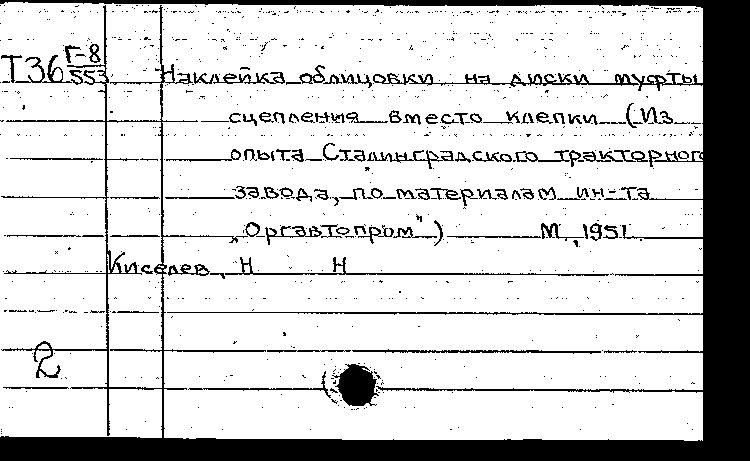 Т36 Г-8/553 Наклейка облицовки на диски муфты
сцепления вместо клепки (Из
опыта Сталинградского тракторного
завода, по материалам ин-та
„Оргавтопром") М, 1951.
Киселев, Н Н
2